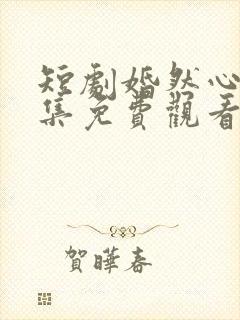 短劇婚然心
集免費觀看
賀曄春